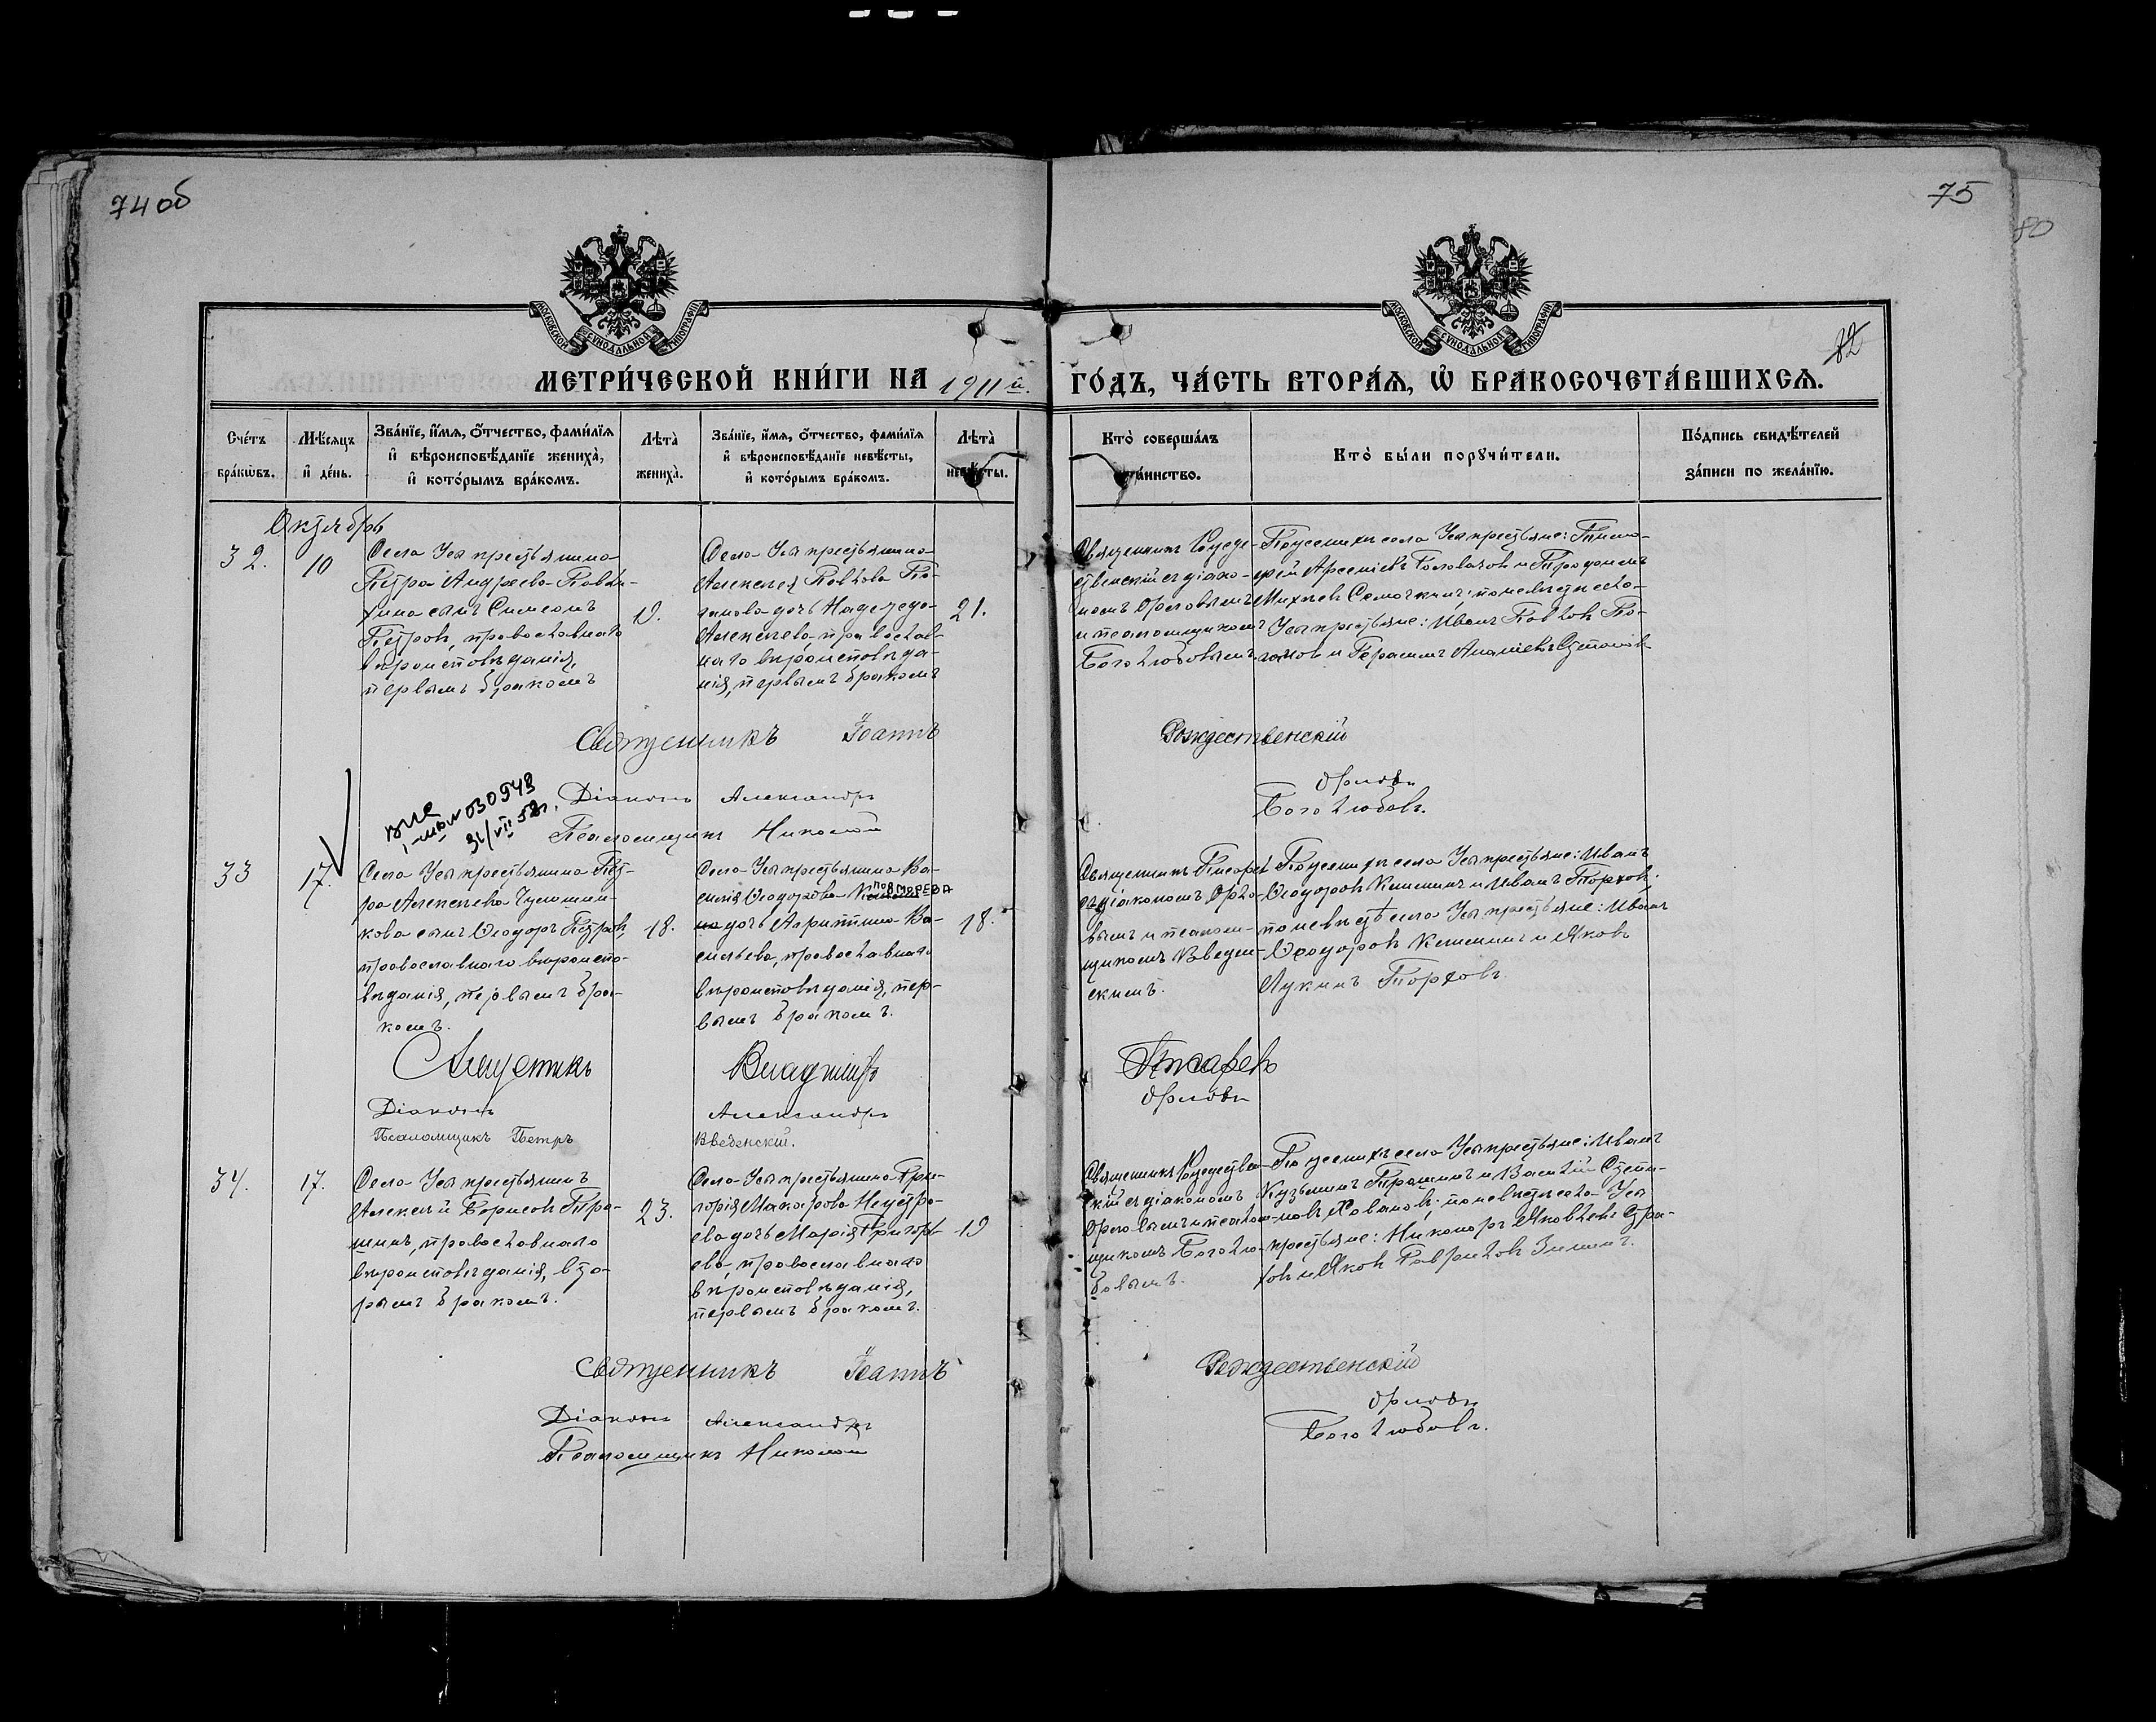 74 об
75
80
82
МОСКОВСКОЙ СѴНОДАЛЬНОЙ ТИПОГРАФІИ
МОСКОВСКОЙ СѴНОДАЛЬНОЙ ТИПОГРАФІИ
МЕТРИ́ЧЕСКОЙ КНИ́ГИ НА 1911 й. ГО́ДЪ, ЧА́СТЬ ВТОРА́Я, Ѡ҆ БРАКОСОЧЕТА́ВШИХСЯ.
Сче́тъ бра́кѡвъ.
Мѣ́сяцъ и҆ де́нь.
Зва́нїе, и҆́мя, ѻ҆́тчество, фами́лїя и҆ вѣроисповѣ́данїе жениха̀, и҆ кото́рымъ бра́комъ.
Лѣта̀ жениха̀.
Зва́нїе, и҆́мя, ѻ҆́тчество, фами́лїя и҆ вѣроисповѣ́данїе невѣ́сты, и҆ кото́рымъ бра́комъ.
Лѣта̀ невѣ́сты.
Кто̀ соверша́лъ та́инство.
Кто̀ бы́ли порꙋчи́тели.
По́дпись свидѣ́телей за́писи по жела́нїю.
Октябрь
32.
10
Села Уся крестьянина
Петра Андреева
сынъ Симеонъ
Петровъ, православнаго
вѣроисповѣданія,
первымъ бракомъ
19.
Села Уся крестьянина
Алексея Павлова
дочь Надежда
Алексеева, православ-
наго вѣроисповѣда-
нія, первымъ бракомъ
21.
Священникъ Рожде-
ственскій съ діако-
номъ Орловымъ
и псаломщикомъ
Боголюбовымъ
По женихѣ села Уся крестьяне:
Арсеніевъ и
по невѣстѣ села
Уся крестьяне: Иванъ Павловъ
и Герасимъ
Священникъ Іоаннъ Рождественскій
Діаконъ Александръ Орловъ
Псаломщикъ Николай Боголюбовъ.
030543
31/VII 52г.
33
17.
Села Уся крестьянина Пет-
ра Алексеева
кова сынъ Ѳеодоръ Петровъ,
православнаго вѣроиспо-
вѣданія, первымъ бра-
комъ.
18.
Села Уся крестьянина Ва-
силія Ѳеодорова
ПОНОМОРЕВА
дочь Агрипина Ва-
сильева, православнаго
вѣроисповѣданія, пер-
вымъ бракомъ.
18.
Священникъ
съ діакономъ Орло-
вымъ и псалом-
щикомъ Введен-
скимъ.
По женихѣ села Уся крестьяне: Иванъ
Ѳеодоровъ и Иванъ
по невѣстѣ села Уся крестьяне: Иванъ
Ѳеодоровъ и Яковъ
Лукинъ
Священникъ Владиміръ
Діаконъ Александръ Орловъ
Псаломщикъ Петръ Введенскій.
34.
17.
Села Уся крестьянинъ
Алексѣй Борисовъ Тра-
шинъ, православнаго
вѣроисповѣданія, вто-
рымъ бракомъ.
23.
Села Уся крестьянина Гри-
горія Макарова
дочь Марія Григорь-
ева, православнаго
вѣроисповѣданія,
первымъ бракомъ.
19
Священникъ Рождествен-
скій съ діакономъ
Орловымъ и псалом-
щикомъ Боголю-
бовымъ.
По женихѣ села Уся крестьяне: Иванъ
Кузьминъ Трашинъ и Василій Степа-
новъ; по невѣстѣ села Уся
крестьяне: Никаноръ Яковлевъ
и Яковъ Гавриловъ Зиминъ.
Священникъ Іоаннъ Рождественскій
Діаконъ Александръ Орловъ
Псаломщикъ Николай Боголюбовъ.